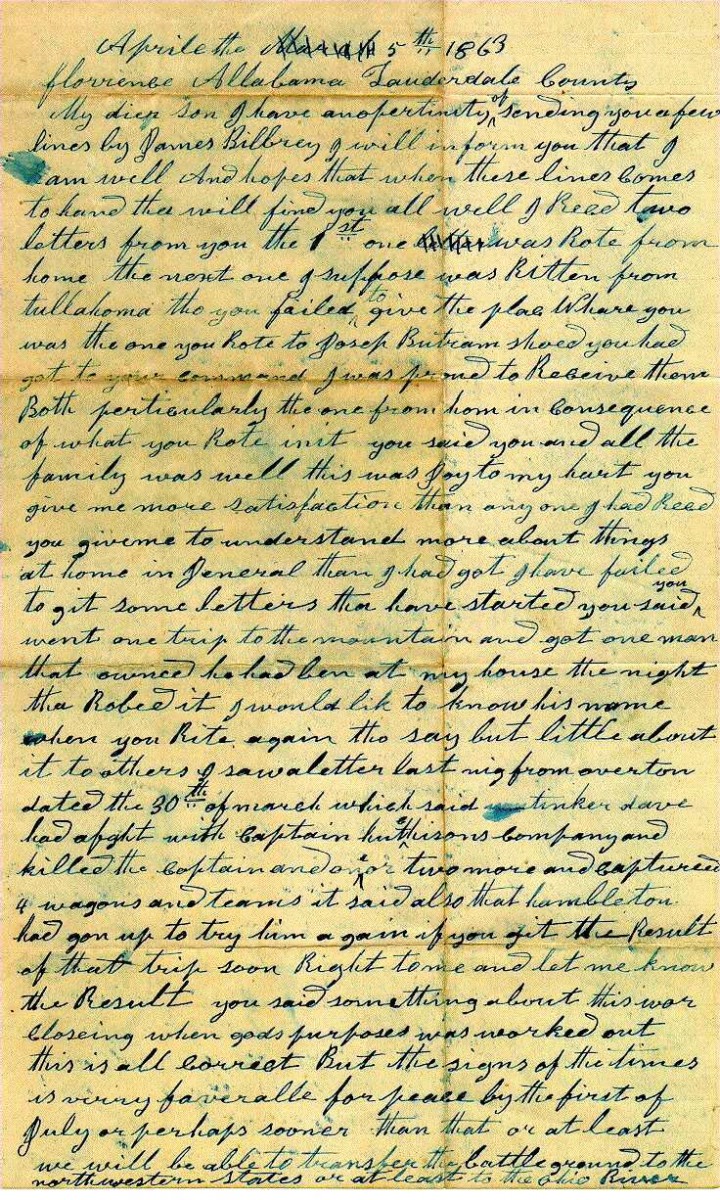 Aprile the 5th 1863
florrence Allabama Lauderdale County
My dier Son I have anopertinity of sending you a few
lines by James Bilbrey I will inform you that I
am well And hopes that when these lines Comes
to hand tha will find you all well I Recd two
letters from you the 1st one was Rote from
home the next one I suppose was Ritten from
tullahoma tho you failed to give the plac Whare you
was the one you Rote to Josep Butram shoed you had
got to your command I was proud to Receive them
Both perticularly the one from hom in Consequence
of what you Rote init you said you and all the
family was well this was Joy to my hart you
give me more satisfaction than any one I had Recd
you giveme to understand more about things
at home in General than I had got I have failed
to git some letters tha have started you said you
went one trip to the mountain and got one man
that owned he had ben at my house the night
tha Robed it I would lik to know his name
when you Rite again tho say but little about
it to others I saw a letter last nig from overton
dated the 30th of march which said tinker dave
had a fght with Captain hutchisons Company and
killed the Captain and one or two more and Captured
4 wagons and teams it said also that hambleton
had gon up to try him a gain if you git the Result
of that trip soon Right to me and let me know
the Result you said something about this war
Closeing when gods purposes was worked out
this is all Correct But the signs of the times
is verry faveralle for peace by the first of
July or perhaps sooner than that or at least
we will be able to transfer the battle ground to the
northwestern states or at least to the Ohio River